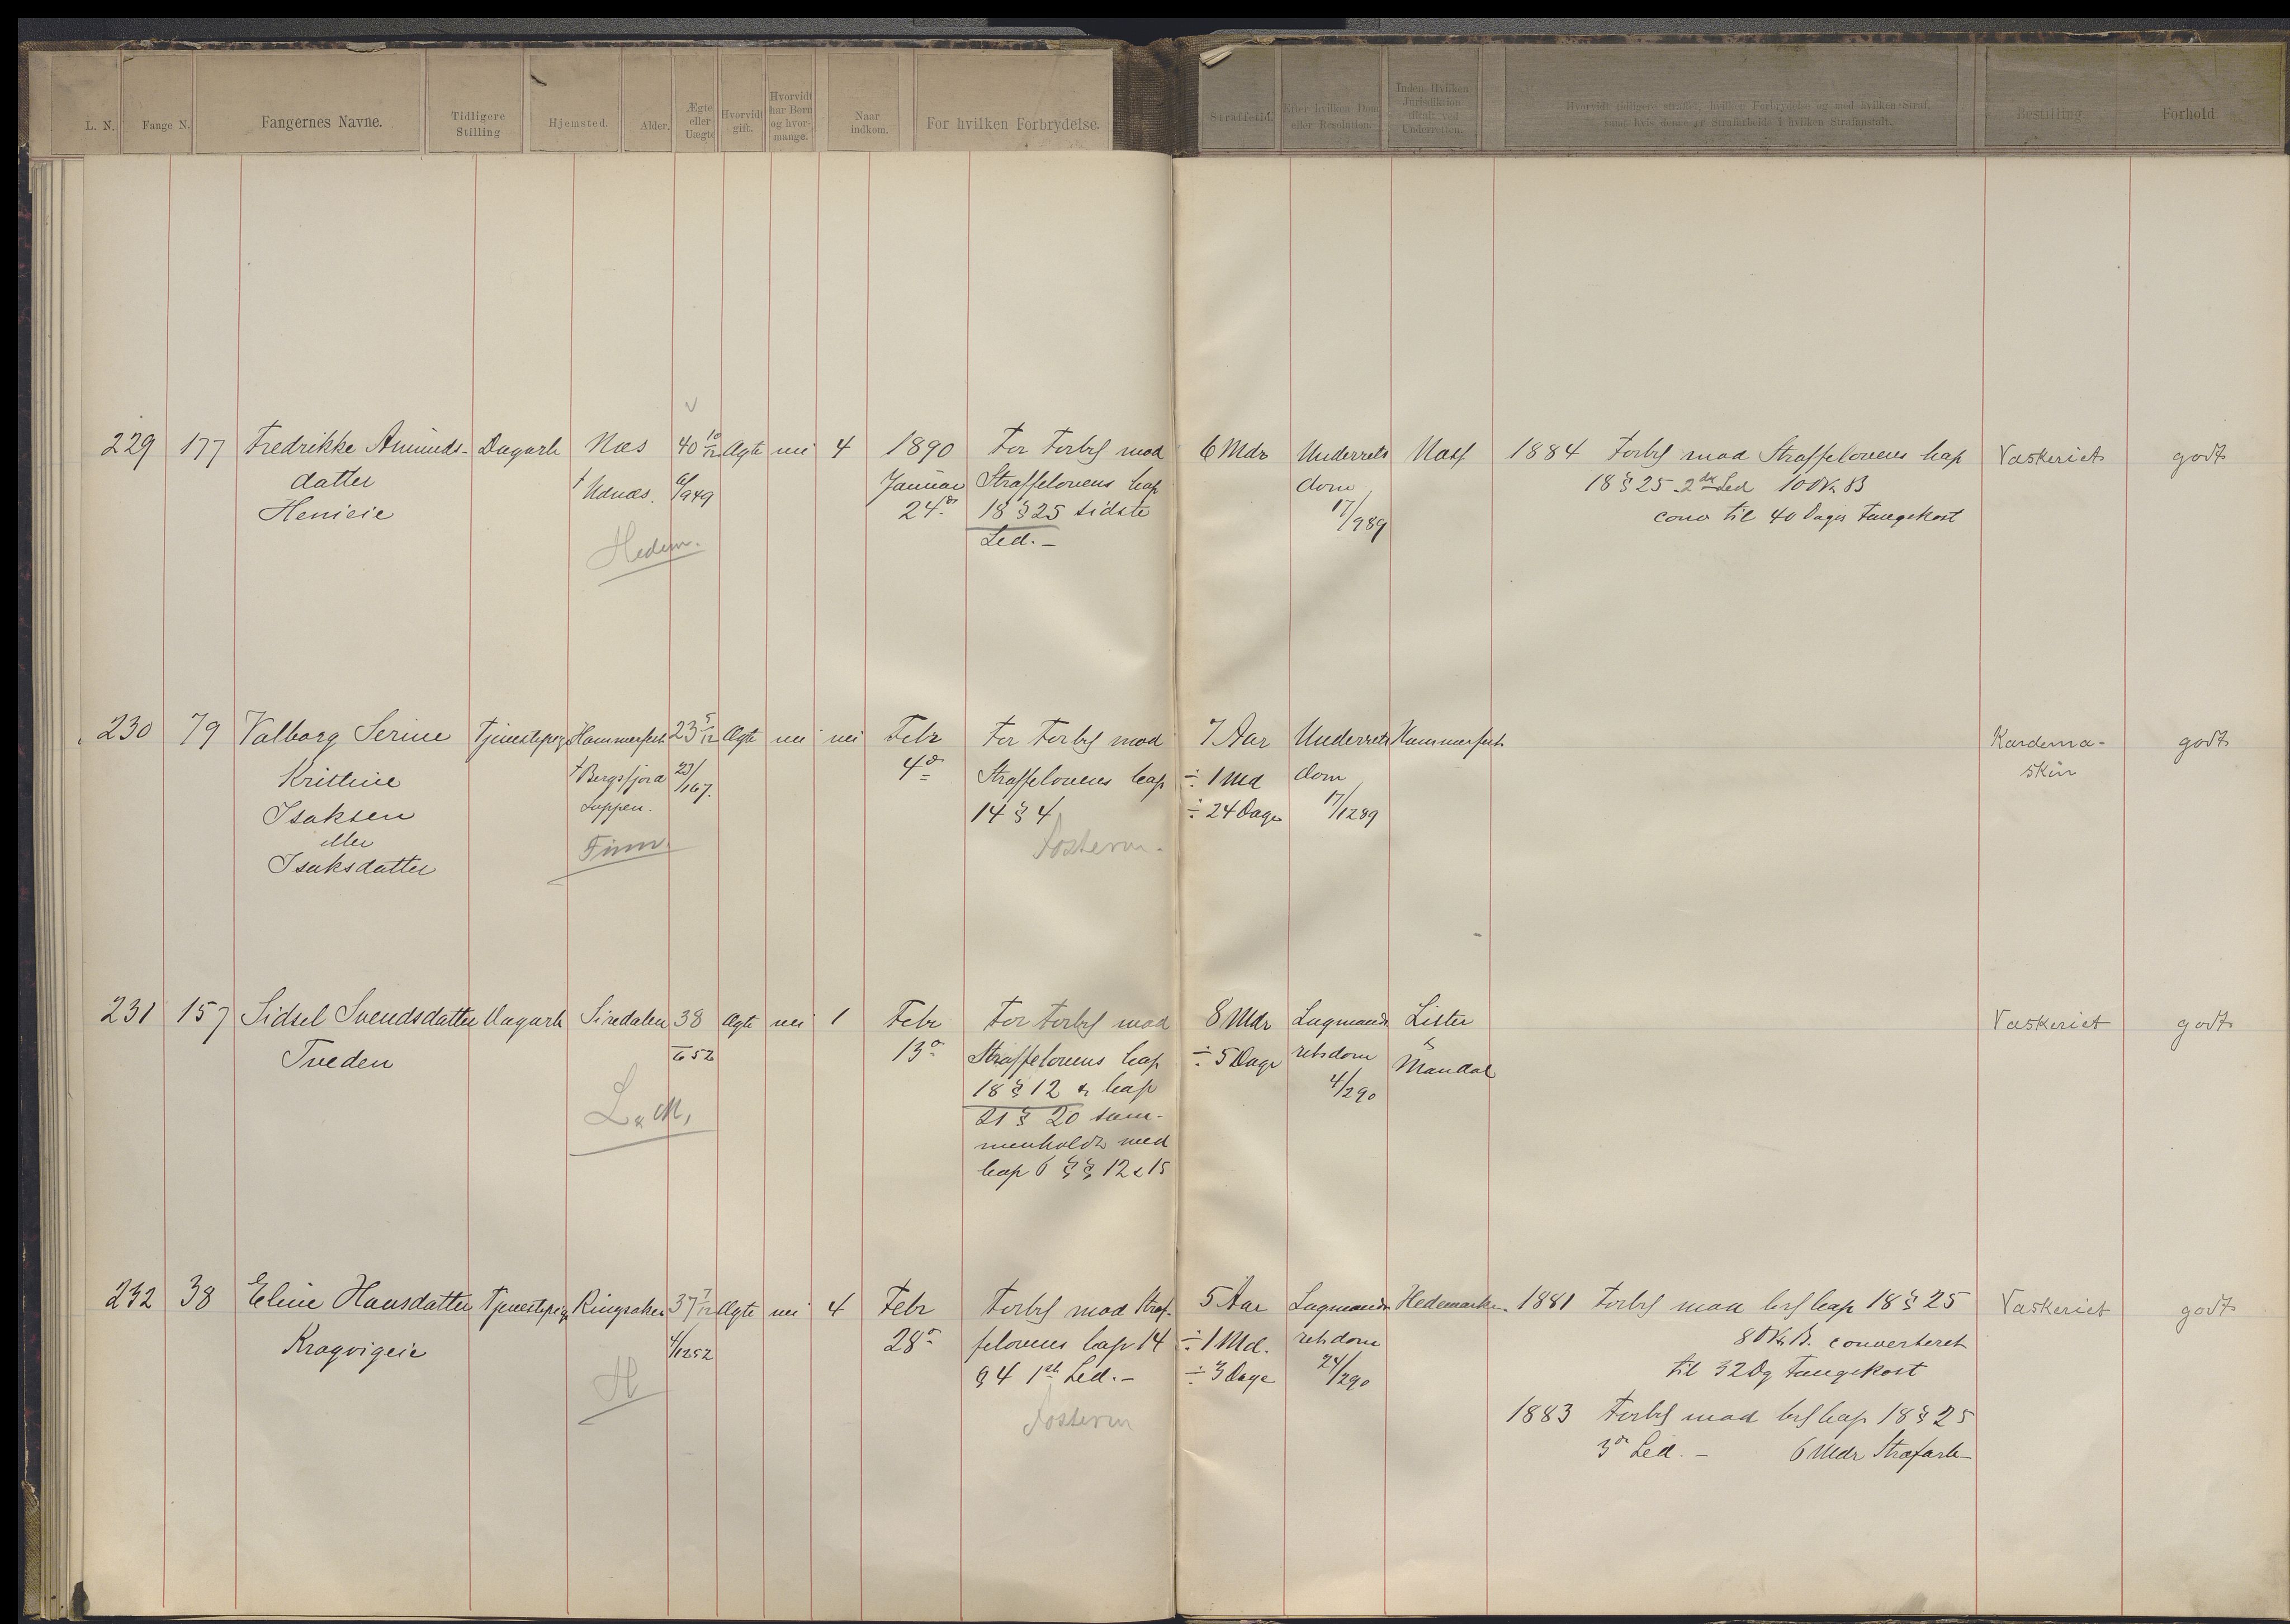 L. N.
Fange N.
Fangernes Navne.
Tidligere
Stilling
Hjemsted.
Alder.
Ægte
eller
Uægte
Hvorvidt
gift.
Hvorvidt
har Børn
og hvor-
mange.
Naar
indkom.
For hvilken Forbrydelse.
Straffetid.
Efter hvilken Dom
eller Resolution.
Inden Hvilken
Jurisdiktion
tiltalt ved
Underretten.
Hvorvidt tidligere straffet, hvilken Forbrydelse og med hvilken Straf,
samt hvis denne er Strafarbeide i hvilken Strafanstalt.
Bestilling
Forhold
229 177 Fredrikke Amunds- Dagarb Næs 40 10/12 Ægte nei 4 1890 For Forbr mod 6 Mdr Underrets 1884 Forbr mod Straffelovens Cap Vaskeriet godt
datter † Udnæs. 6/949 Januar Straffelovens Cap dom 18 § 25 2det Led 100 Kr B
Henieie 24de 18 § 25 sidste 17/989 conv til 40 Dages Fangekost
Hedem. Led.-
230 79 Valborg Serine Tjenestepige Hammerfest 23 5/12 Ægte nei nei Febr For Forbr mod 7 Aar Underrets Hammerfest Kardema- godt
Kristine † Bergsfjord 23/167. 4de Straffelovens Cap ÷ 1 Md dom skin
Isaksen Loppen. 14 § 4 ÷ 24 Dage 17/1289
eller Finm. Fosterm.
Isaksdatter
231 157 Sidsel Svendsdatter Dagarb Siredalen 38 Ægte nei 1 Febr For Forbr mod 8 Mdr Lagmands Lister Vaskeriet godt
Tveden 52 13de Straffelovens Cap ÷ 5 Dage retsdom &
L & M. 18 § 12 & Cap 4/290 Mandal
21 § 20 sam-
menholdt med
Cap 6 §§ 12 & 15
232 38 Eline Hansdatter Tjenestepige Ringsaker 37 7/12 Ægte nei 4 Febr Forbr mod Straf- 5 Aar Lagmands Hedemarken 1881 Forbr mod Crl Cap 18 § 25 Vaskeriet godt
Kragvigeie 4/1252 28de felovens Cap 14 ÷ 1 Md. retsdom 80 Kr B. converteret
H § 4 1ste Led.- ÷ 3 Dage 24/290 til 32 Dg Fangekost
Fosterm 1883 Forbr mod Crl Cap 18 § 25
3de Led.- 6 Mdr Strafarb-